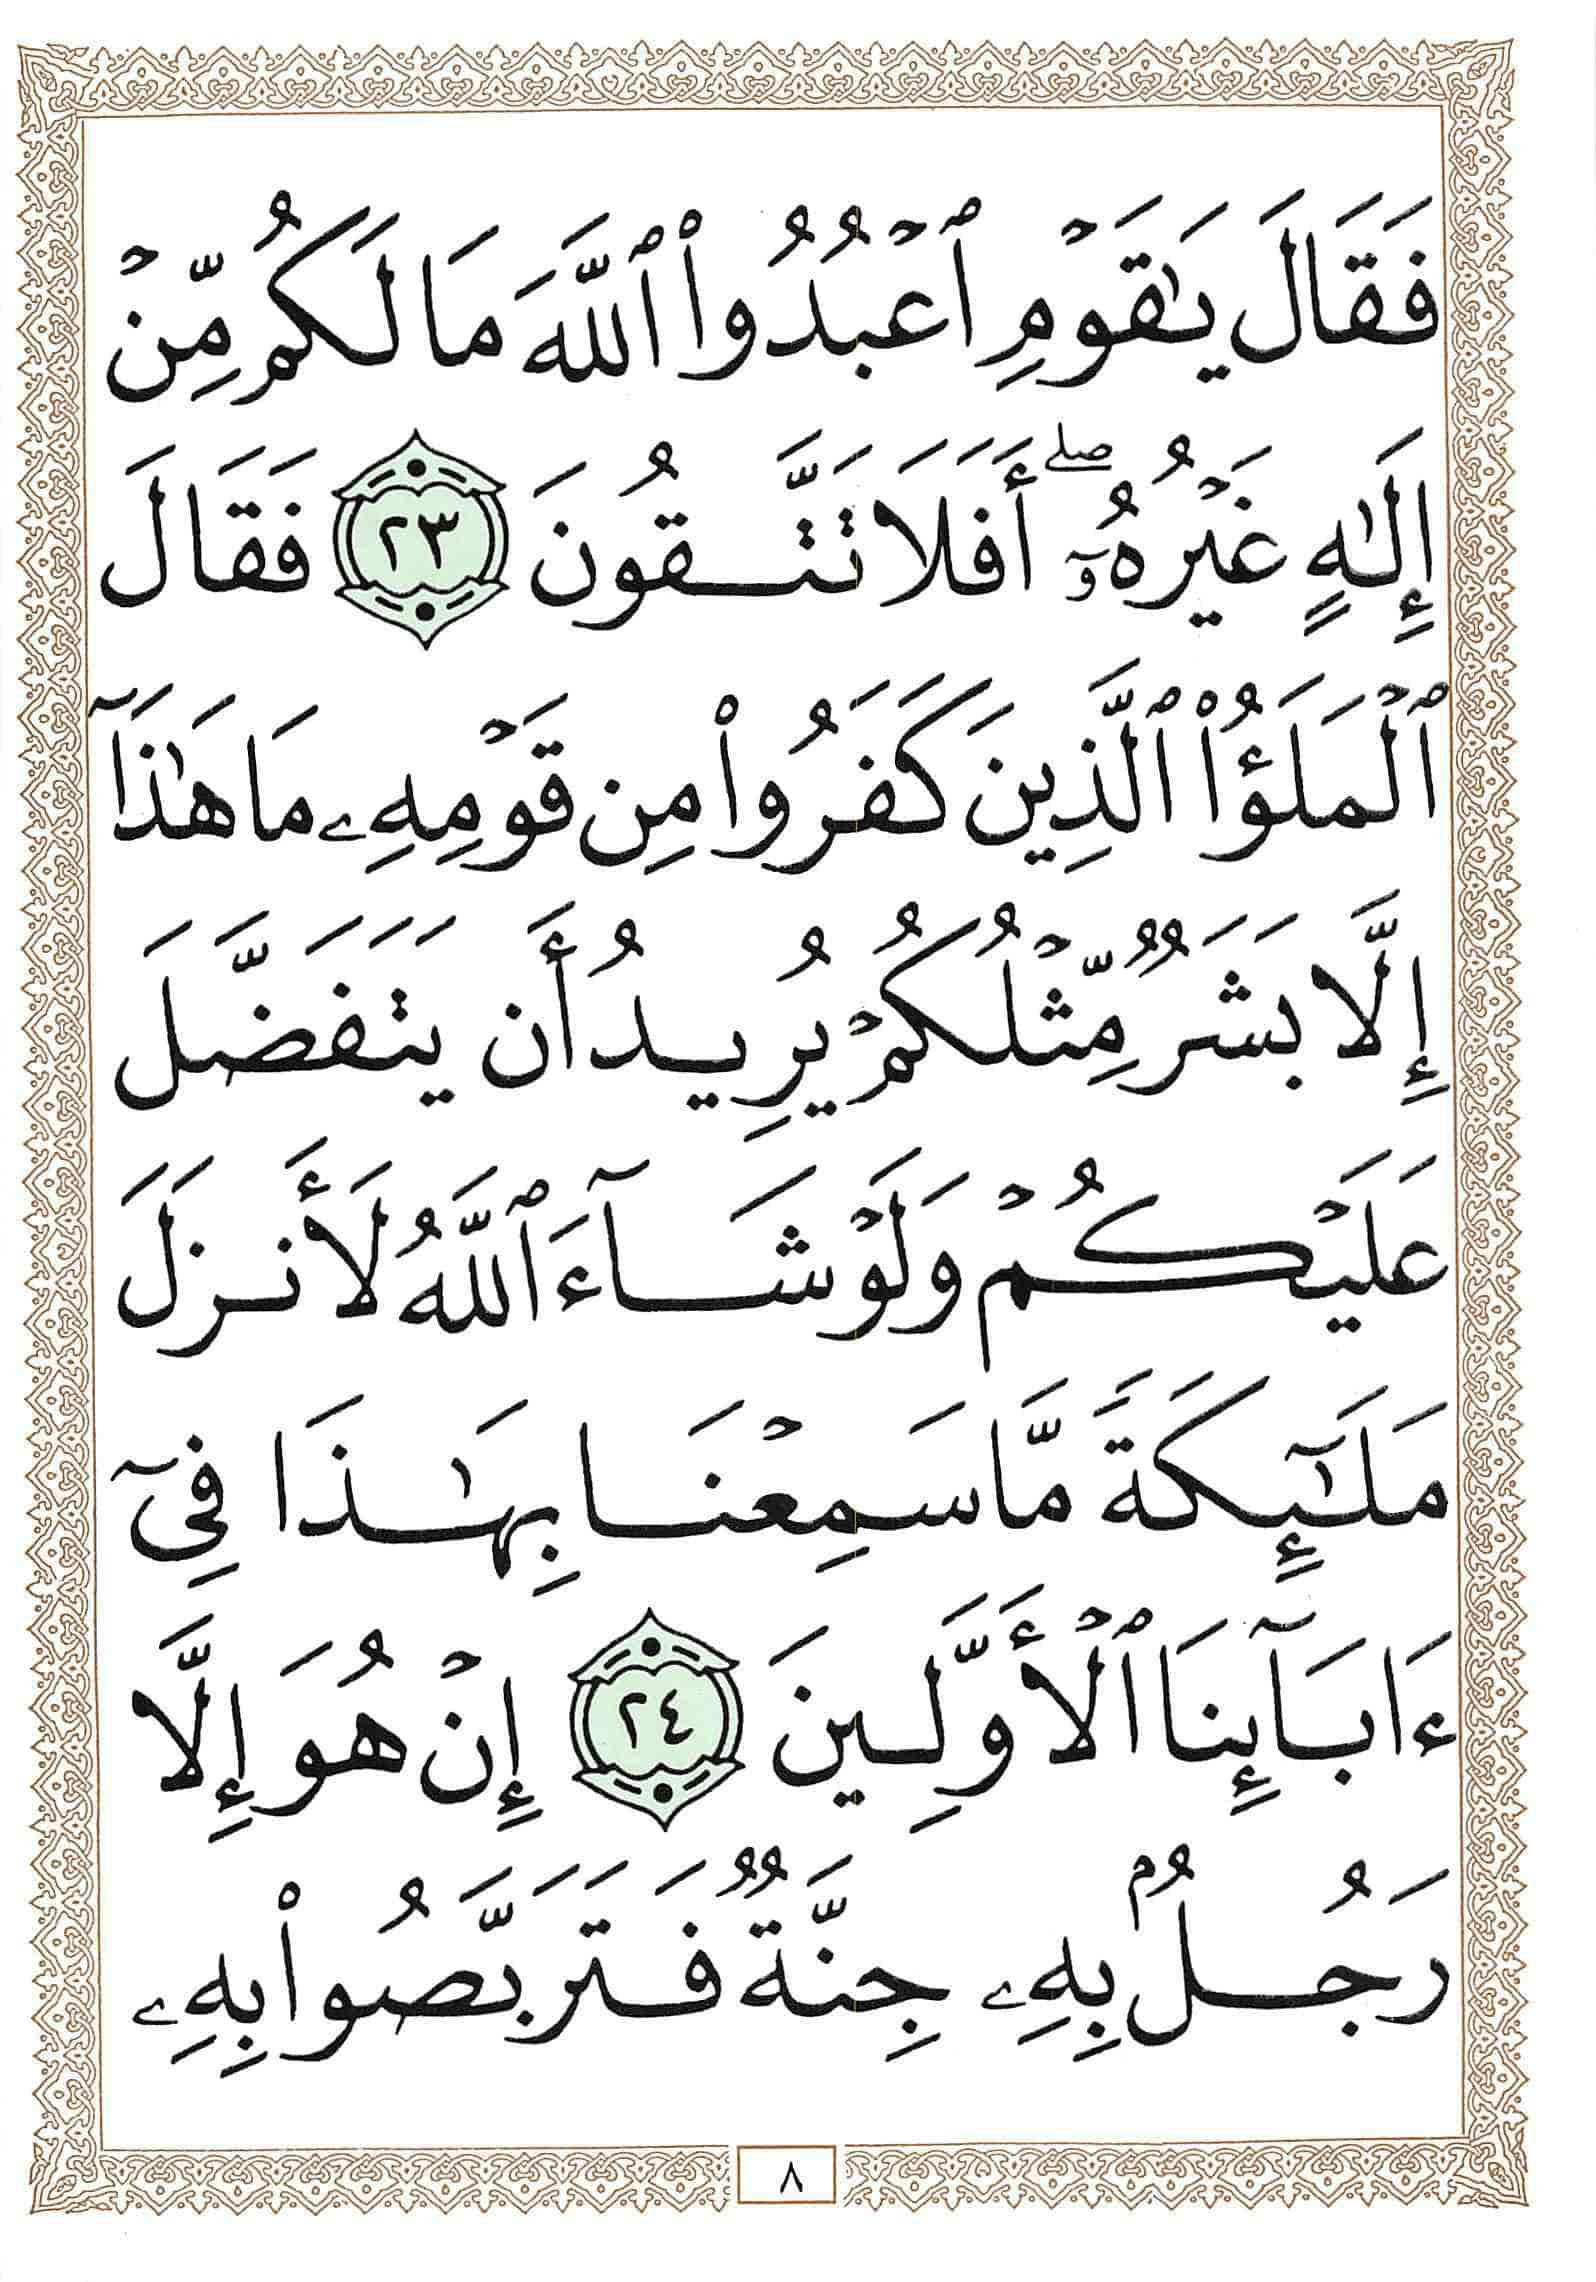 فَقَالَ يَٰقَوۡمِ ٱعۡبُدُواْ ٱللَّهَ مَا لَكُم مِّنۡ
إِلَٰهٍ غَيۡرُهُۥٓۖ أَفَلَا تَتَّقُونَ ٢٣ فَقَالَ
ٱلۡمَلَؤُاْ ٱلَّذِينَ كَفَرُواْ مِن قَوۡمِهِۦ مَا هَٰذَآ
إِلَّا بَشَرٞ مِّثۡلُكُمۡ يُرِيدُ أَن يَتَفَضَّلَ
عَلَيۡكُمۡ وَلَوۡ شَآءَ ٱللَّهُ لَأَنزَلَ
مَلَٰٓئِكَةٗ مَّا سَمِعۡنَا بِهَٰذَا فِيٓ
ءَابَآئِنَا ٱلۡأَوَّلِينَ ٢٤ إِنۡ هُوَ إِلَّا
رَجُلُۢ بِهِۦ جِنَّةٞ فَتَرَبَّصُواْ بِهِۦ
٨